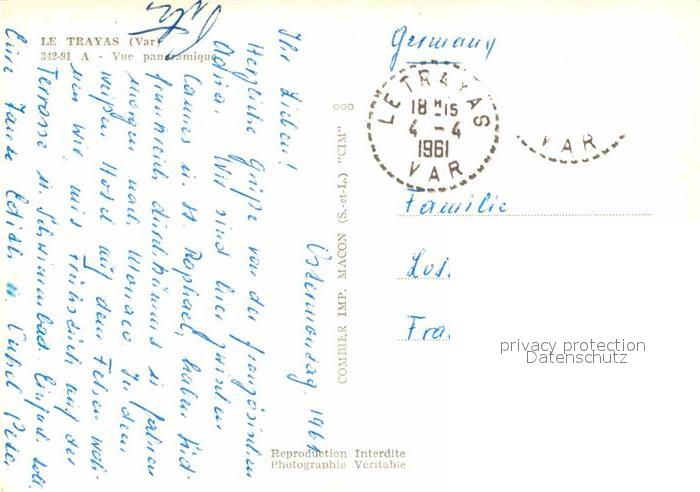 LE TRAYAS (Var)
342-91 A - Vue panoramique
Ostermontag 1961
Ihr Lieben!
Herzliche Grüße von der französischen
Adria. Wir sind hier zwischen
Cannes u. St. Raphael, haben Süd-
frankreich durchkämmt u. fahren
morgen nach Monaco. In dem
weißen Hotel auf dem Felsen woh-
nen wir, mit Frühstück auf der
Terrasse u. Schwimmbad. Einfach toll.
Eure Tante Edith u. Onkel Peter
COMBIER IMP. MACON (S.-et-L.) "CIM"
Germany
LE TRAYAS
18 H 15
4 - 4
1961
VAR
VAR
Familie
Lud.
Fra.
privacy protection
Datenschutz
Reproduction Interdite
Photographie Véritable